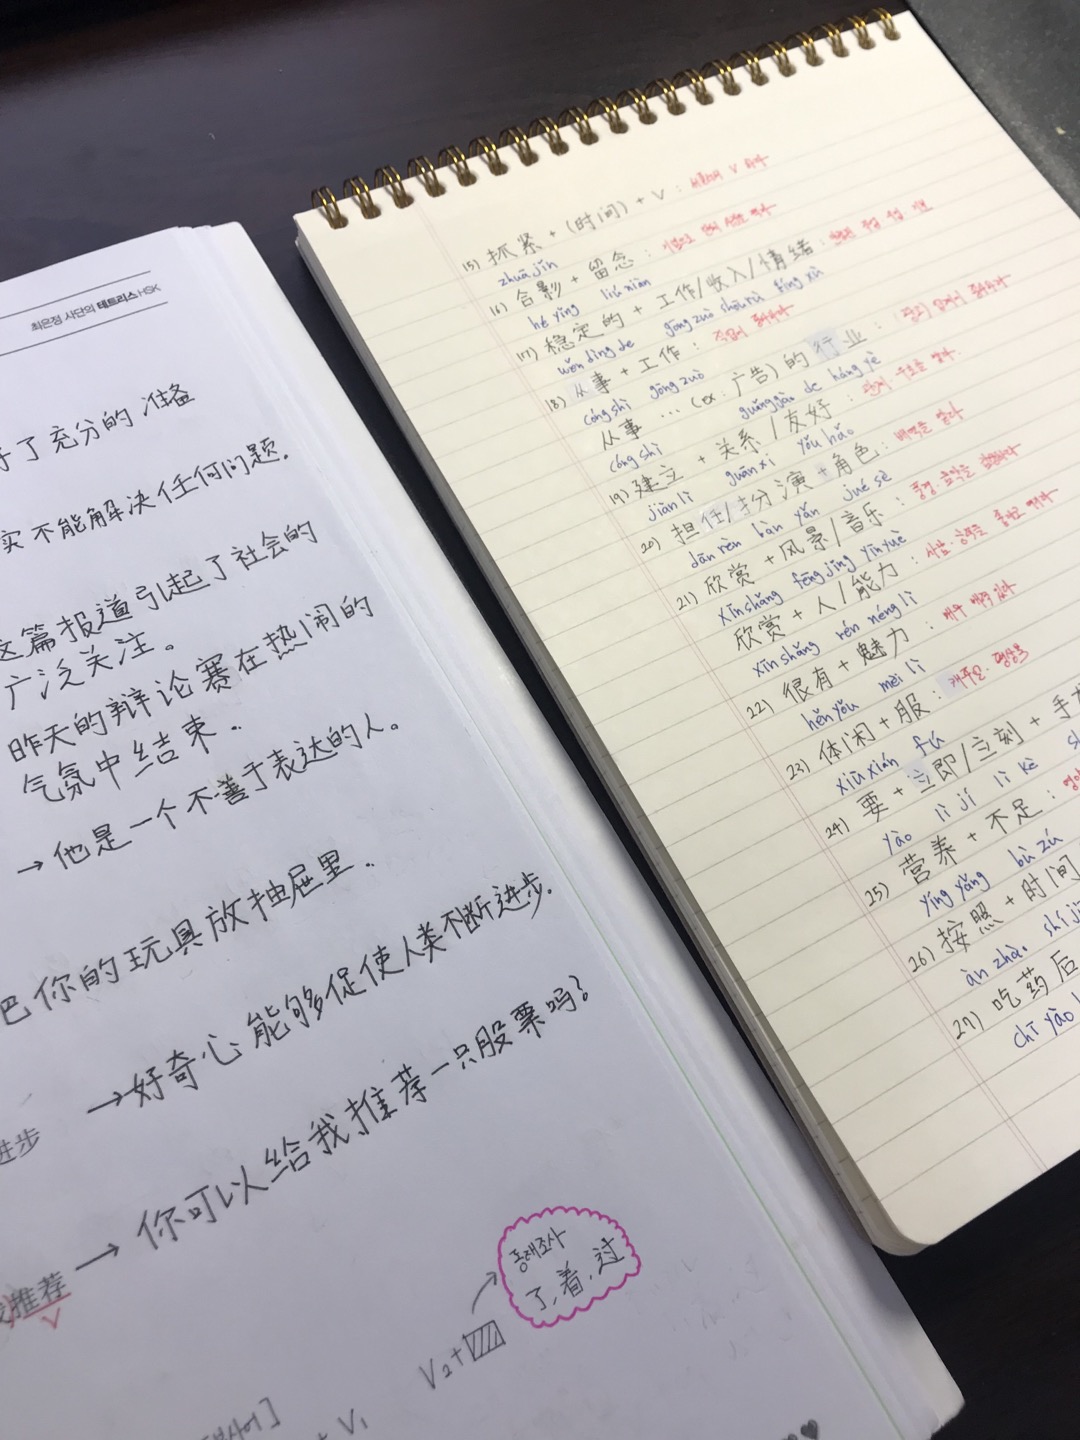 최은정 사단의 테트리스 HSK
了充分的 准备
实 不能解决 任何问题.
这篇报道引起了社会的
广泛关注。
昨天的辩论赛在热闹的
气氛中结束.
→他是一个不善于表达的人。
把你的玩具放抽屉里.
→好奇心能够促使人类不断进步.
进步
→ 你可以给我推荐一只股票吗?
推荐
동태조사
了, 着, 过
V2+
V1
15) 抓紧 + (时间) + V : 서둘러 V 하다
zhuājǐn
16) 合影 + 留念 :
hé yǐng liú niàn
17) 稳定的 + 工作/收入/情绪 : 안정된 직업 수입 정서
wěn dìng de gōng zuò shōu rù qíng xù
18) 从事 + 工作 : 직업에 종사하다
cóng shì gōng zuò
从事 … (ex: 广告) 的 行业 :
cóng shì guǎnggào de háng yè
19) 建立 + 关系 / 友好 :
jiàn lì guān xi yǒu hǎo
20) 担任/扮演 + 角色 : 배역을 맡다
dān rèn bàn yǎn jué sè
21) 欣赏 + 风景/音乐 : 풍경·음악을 감상하다
xīn shǎng fēng jǐng yīn yuè
欣赏 + 人/能力 :
xīn shǎng rén néng lì
22) 很有 + 魅力 : 매우 매력 있다
hěn yǒu mèi lì
23) 休闲 + 服 : 캐주얼·평상복
xiū xián fú
24) 要 + 立即/立刻 + 手
yào lì jí lì kè
25) 营养 + 不足 :
yíng yǎng bù zú
26) 按照 + 时间
àn zhào shí ji
27) 吃药后
chī yào